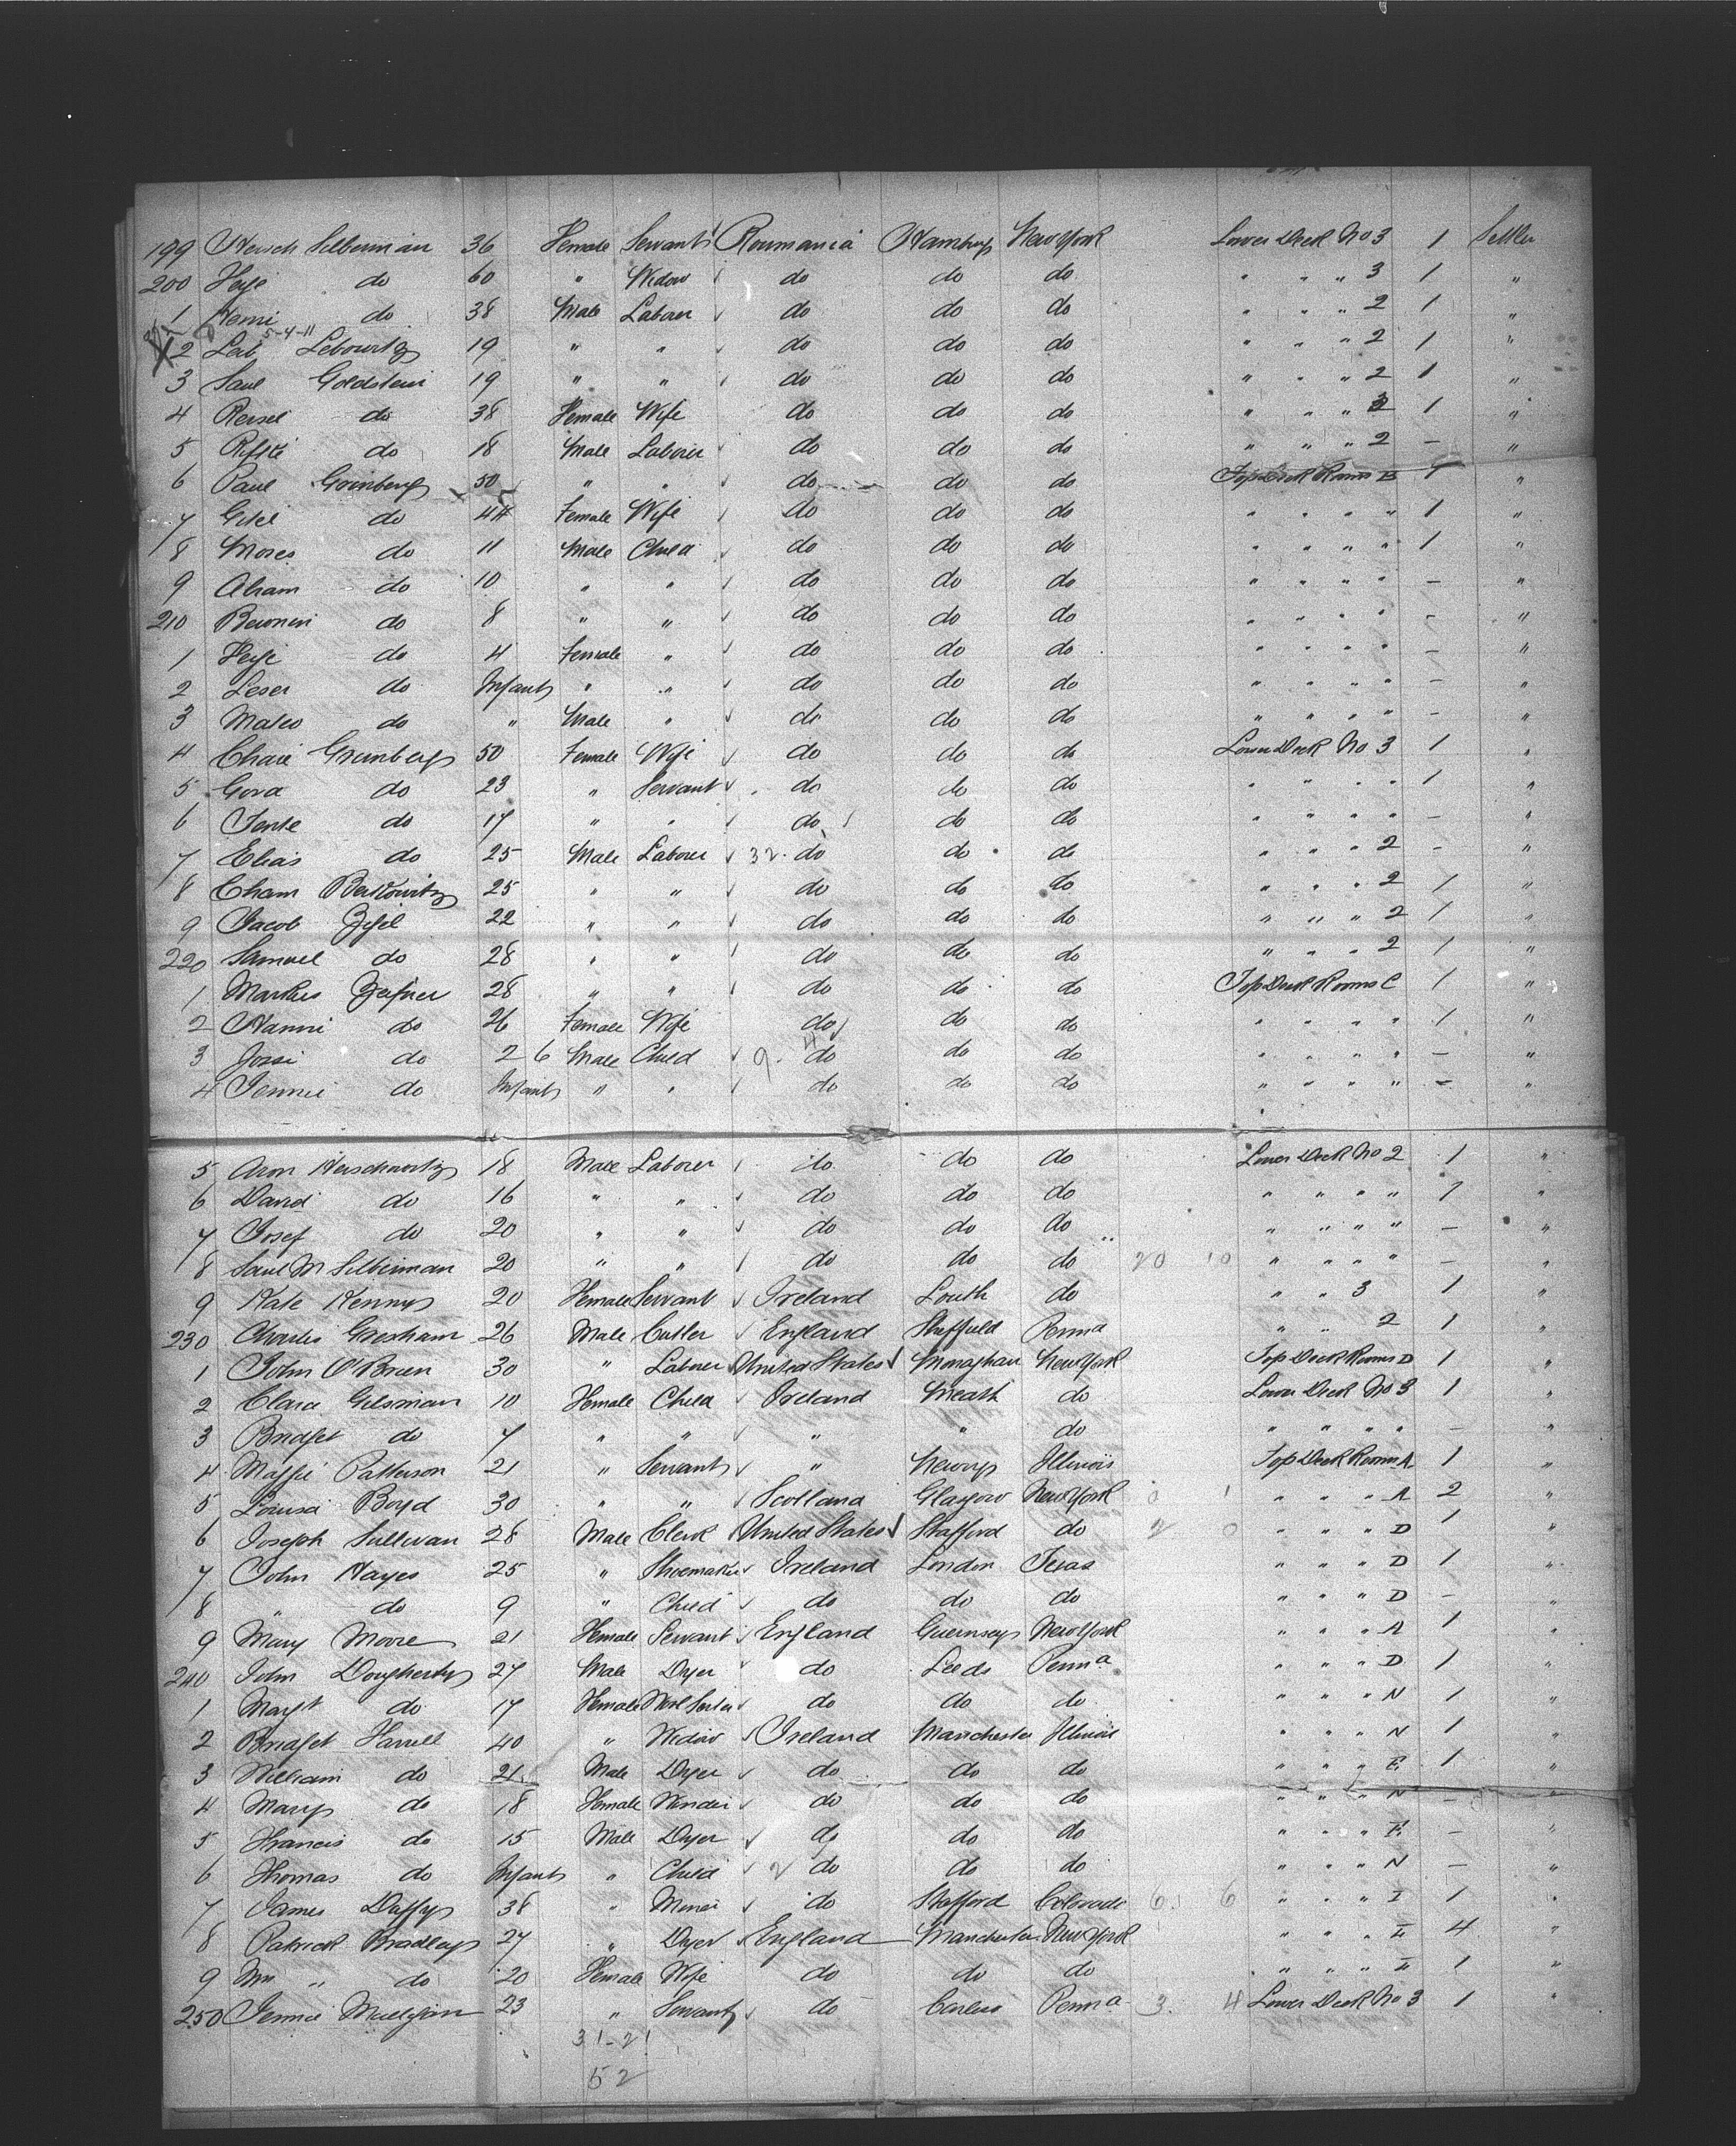 199 Hersch Silberman 36 Female Servant Roumania Hamburg New York Lower Deck No 3 1 Settler
200 Heije do 60 " Widow do do do " " " 3 1 "
1 Henni do 38 Male Laborer do do do " " " 2 1 "
5-4-11
X 2 Leib Lebowitz 19 " " do do do " " " 2 1 "
3 Saul Goldstein 19 " " do do do " " " 2 1 "
4 Reisel do 38 Female Wife do do do " " " 3 1 "
5 Rifke do 18 Male Laborer do do do " " " 2 – "
6 Paul Grinberg 50 " " do do do Top Deck Rooms B 1 "
7 Gitel do 44 Female Wife do do do " " " " 1 "
8 Moses do 11 Male Child do do do " " " " 1 "
9 Abram do 10 " " do do do " " " " – "
210 do 8 " " do do do " " " " – "
1 Heije do 4 Female " do do do " " " " – "
2 Leser do Infant " " do do do " " " " – "
3 do " Male " do do do " " " " – "
4 Chaie Grunberg 50 Female Wife do do do Lower Deck No 3 1 "
5 do 23 " Servant do do do " " " " 1 "
6 do 17 " " do do do " " " " – "
7 Elias do 25 Male Laborer 32 do do do " " " 2 – "
8 Cham Berkowitz 25 " " do do do " " " 2 1 "
9 Jacob 22 " " do do do " " " 2 1 "
220 Samuel do 28 " " do do do " " " 2 1 "
1 Markus 28 " " do do do Top Deck Rooms C 1 "
2 Hanni do 26 Female Wife do do do " " " " 1 "
3 Jossi do 2 6 Male Child 9. 4 do do do " " " " – "
4 Jennie do Infant " " do do do " " " " – "
5 Aron Herschowitz 18 Male Laborer do do do Lower Deck No 2 1 "
6 David do 16 " " do do do " " " " 1 "
7 Josef do 20 " " do do do " " " " – "
8 Saul M Silberman 20 " " do do do 20 10 " " " " – "
9 Kate Kenny 20 Female Servant Ireland Louth do " " 3 1 "
230 Charles Gresham 26 Male Cutler England Sheffield Penna " " 2 1 "
1 John O'Brien 30 " Laborer United States Monaghan New York Top Deck Rooms D 1 "
2 Clara 10 Female Child Ireland Meath do Lower Deck No 3 1 "
3 Bridget do 7 " " " " do " " " " – "
4 Maggie Patterson 21 " Servant " Newry Illinois Top Deck Rooms A 1 "
5 Louisa Boyd 30 " " Scotland Glasgow New York 0 1 " " " A 2 "
6 Joseph Sullivan 28 Male Clerk United States Stafford do 2 0 " " " D 1 "
7 John Hayes 25 " Shoemaker Ireland London Texas " " " D 1 "
8 " do 9 " Child do do do " " " D – "
9 Mary Moore 21 Female Servant England Guernsey New York " " " A 1 "
240 John Dougherty 27 Male Dyer do Leeds Penna " " " D 1 "
1 Mary do 17 Female do do do " " " N 1 "
2 Bridget Farrell 40 " Widow Ireland Manchester Illinois " " " N 1 "
3 William do 21 Male Dyer do do do " " " E 1 "
4 Mary do 18 Female Winder do do do " " " N – "
5 Francis do 15 Male Dyer do do do " " " E – "
6 Thomas do Infant " Child 2 do do do " " " N – "
7 James Duffy 38 " Miner do Stafford Colorado 6. 6 " " " I 1 "
8 Patrick Bradley 27 " Dyer England Manchester New York " " " I 4 "
9 Mrs " do 20 Female Wife do do do " " " I 1 "
250 Jennie Mulligan 23 " Servant do Penna 3. 4 Lower Deck No 3 1 "
31-21
52